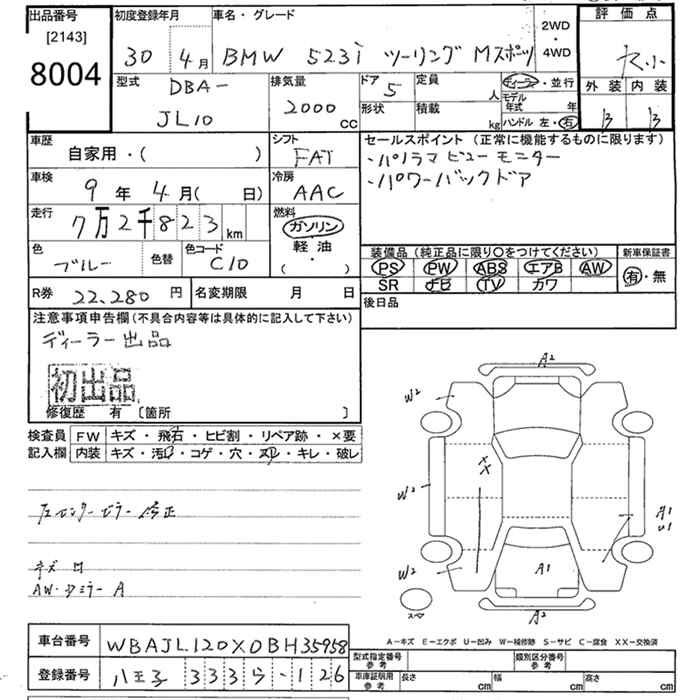 出品番号
[2143]
8004
初度登録年月
30 4月
車名・グレード
BMW 523i ツーリング Mスポーツ
2WD
・
4WD
評価点
外装 内装
B B
型式
DBA-
JL10
排気量
2000
CC
ドア
5
定員
人
形状
積載
kg
ディーラー・並行
モデル年式 年
ハンドル 左・右
車歴
自家用・( )
シフト
FAT
セールスポイント (正常に機能するものに限ります)
・パノラマ ビュー モニター
・パワーバックドア
車検
9年4月( 日)
冷房
AAC
走行
7万2千823km
燃料
ガソリン
・
軽油
・
( )
色
ブルー
色替
色コード
C10
装備品 (純正品に限り〇をつけてください)
PS PW ABS エアB AW
SR ナビ TV カワ
新車保証書
有・無
R券 22,280 円
名変期限 月 日
後日品
注意事項申告欄 (不具合内容等は具体的に記入して下さい)
ディーラー出品
初出品
修復歴 有 〔箇所 〕
検査員
記入欄
FW キズ・飛石・ヒビ割・リペア跡・×要
内装 キズ・汚れ・コゲ・穴・スレ・キレ・破レ
左センターピラー修正
AW・ドミラー A
A2
W2
XX
W2
A1
U1
W2
A1
スペア
A2
A－キズ E－エクボ U－凹み W－補修跡 S－サビ C－腐食 XX－交換済
車台番号 WBAJL120X0BH35958
登録番号 八王子 333 ら - 126
型式指定番号
参考
類別区分番号
参考
車庫証明用
参考
長さ cm 幅 cm 高さ cm